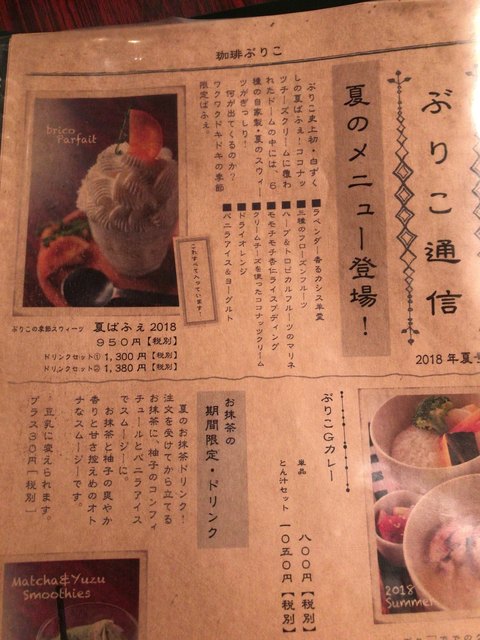 珈琲ぶりこ
ぶりこ通信
2018年夏
夏のメニュー登場!
ぶりこ史上初・白ずく
しの夏ぱふぇ!ココナッ
ツチーズクリームに覆わ
れたドームの中には、6
種の自家製・夏のスウィー
ツがぎっしり!
何が出てくるのか?
ワクワクドキドキの季節
限定ぱふぇ。
■ラベンダー香るカシス羊羹
■三種のフローズンフルーツ
■ハーブ&トロピカルフルーツのマリネ
■モモチモチ杏仁ライスプディング
■クリームチーズを使ったココナッツクリーム
■ドライオレンジ
■バニラアイス&ヨーグルト
これすべて入っています。
brico
Parfait
ぶりこの季節スウィーツ 夏ぱふぇ2018
950円【税別】
ドリンクセット① 1,300円【税別】
ドリンクセット② 1,380円【税別】
ぶりこGカレー
単品 八〇〇円【税別】
とん汁セット 一〇五〇円【税別】
2018
Summer
お抹茶の
期間限定・ドリンク
夏のお抹茶ドリンク!
注文を受けてから立てる
お抹茶に、柚子のコンフィ
チュールとバニラアイス
でスムージーに。
お抹茶と柚子の爽やか
香りと甘さ控えめのオト
ナなスムージーです。
豆乳に変えられます。
プラス30円「税別」
Matcha&Yuzu
Smoothies